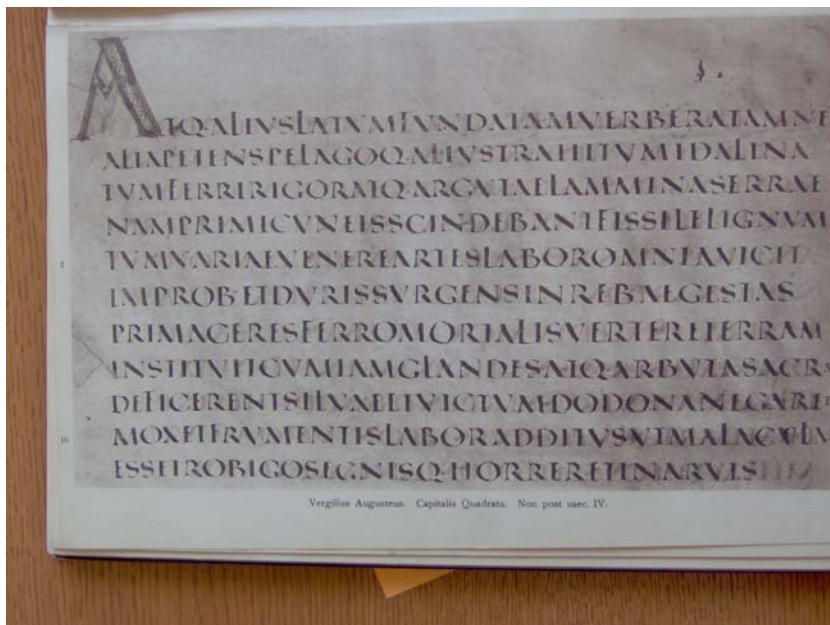 ATQ·ALIVSLATVMFVNDAIAMVERBERATAMNE
ALTAPETENSPELAGOQ·ALIVSTRAHITVMIDALINA
TVMFERRIRIGORATQ·ARGVTAELAMMINASERRAE
NAMPRIMICVNEISSCINDEBANTFISSILELIGNVM
5 TVMVARIAEVENEREARTESLABOROMNIAVICIT
IMPROB·ETDVRISSVRGENSINREB·AEGESTAS
PRIMACERESFERROMORTALISVERTERETERRAM
INSTITVITCVMIAMGLANDESATQ·ARBVTASACRA
DEFICERENTSILVAEETVICTVMDODONANEGARE
10 MOXETFRVMENTISLABORADDITVSVTMALACVLM
ESSETROBIGOSEGNISQ·HORRERETINARVIS
Vergilius Augusteus. Capitalis Quadrata. Non post saec. IV.